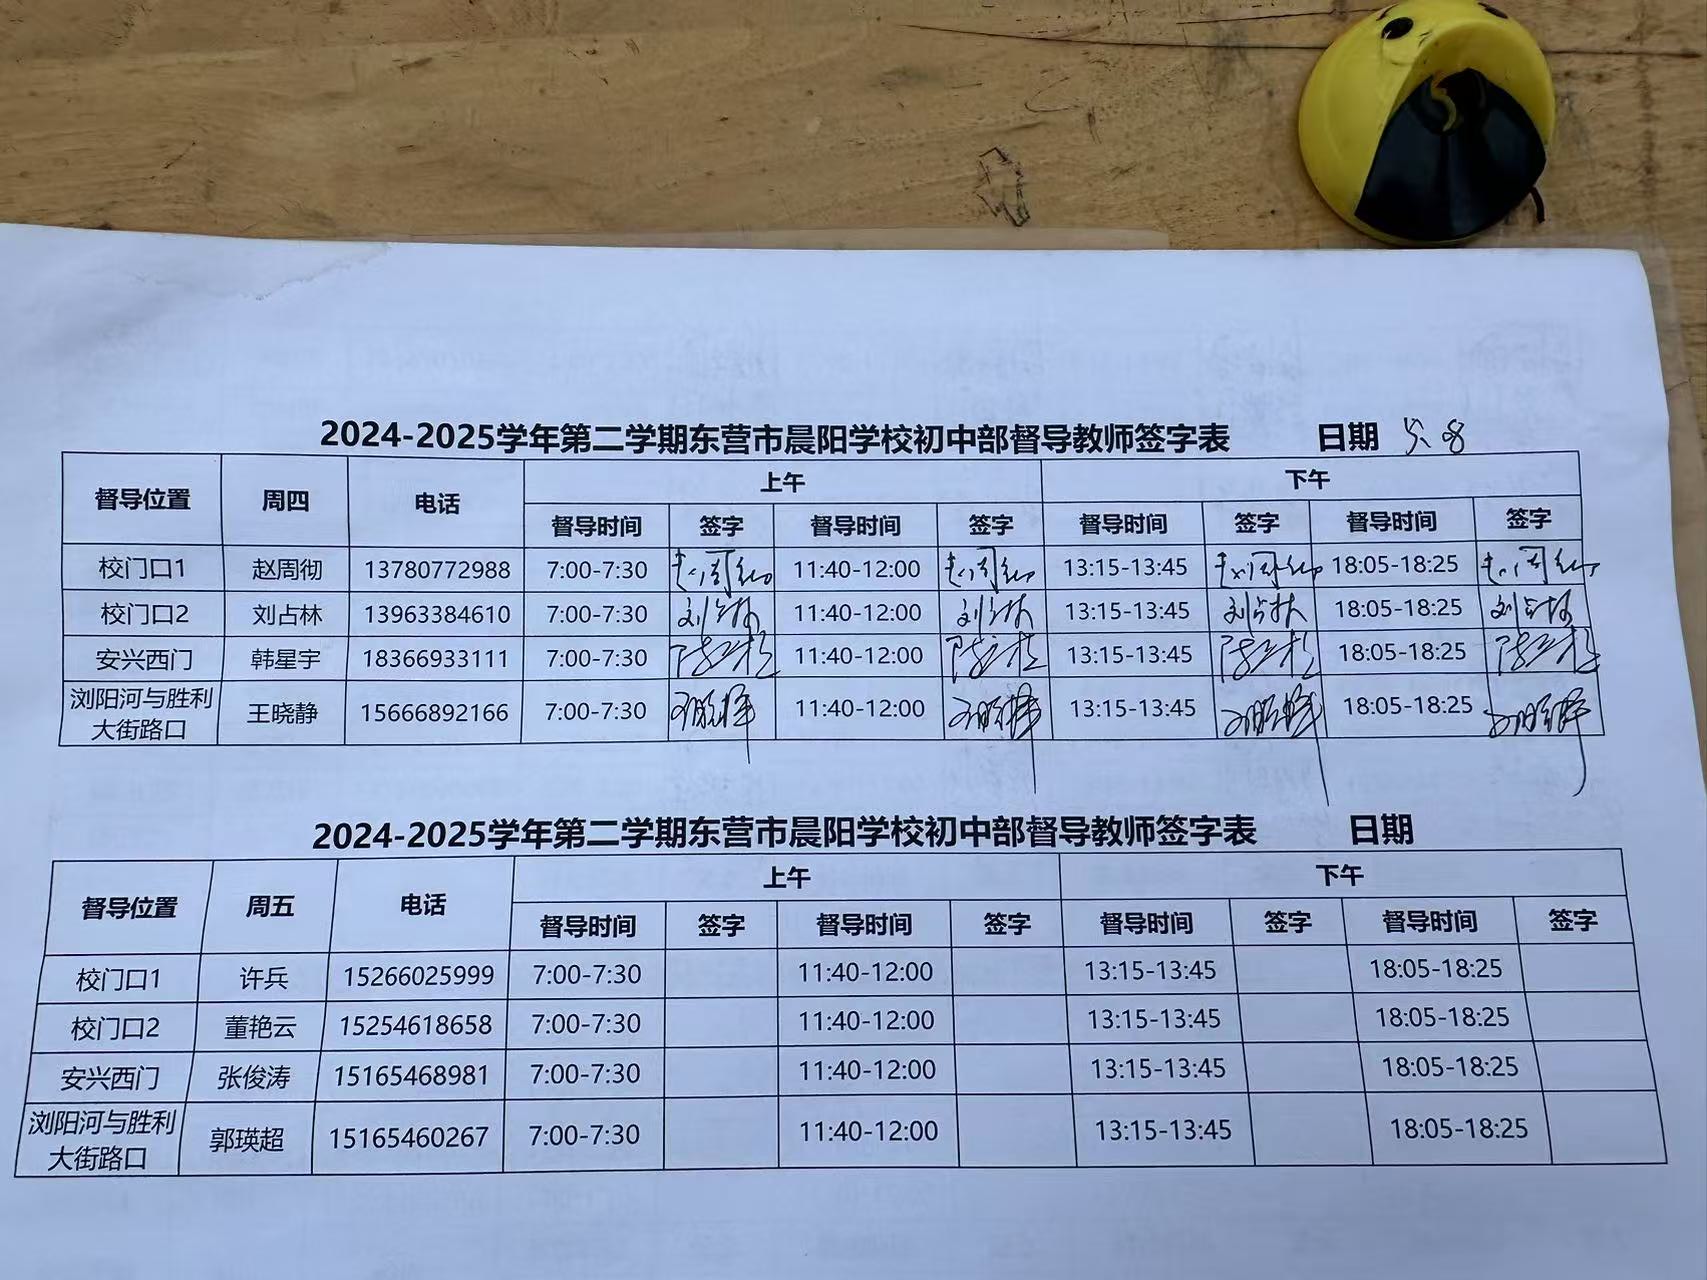 2024-2025学年第二学期东营市晨阳学校初中部督导教师签字表 日期 5.8
督导位置 周四 电话 上午 下午
督导时间 签字 督导时间 签字 督导时间 签字 督导时间 签字
校门口1 赵周彻 13780772988 7:00-7:30 11:40-12:00 13:15-13:45 18:05-18:25
校门口2 刘占林 13963384610 7:00-7:30 刘占林 11:40-12:00 刘占林 13:15-13:45 刘占林 18:05-18:25 刘占林
安兴西门 韩星宇 18366933111 7:00-7:30 11:40-12:00 13:15-13:45 18:05-18:25
浏阳河与胜利
大街路口 王晓静 15666892166 7:00-7:30 11:40-12:00 13:15-13:45 18:05-18:25
2024-2025学年第二学期东营市晨阳学校初中部督导教师签字表 日期
督导位置 周五 电话 上午 下午
督导时间 签字 督导时间 签字 督导时间 签字 督导时间 签字
校门口1 许兵 15266025999 7:00-7:30 11:40-12:00 13:15-13:45 18:05-18:25
校门口2 董艳云 15254618658 7:00-7:30 11:40-12:00 13:15-13:45 18:05-18:25
安兴西门 张俊涛 15165468981 7:00-7:30 11:40-12:00 13:15-13:45 18:05-18:25
浏阳河与胜利
大街路口 郭瑛超 15165460267 7:00-7:30 11:40-12:00 13:15-13:45 18:05-18:25